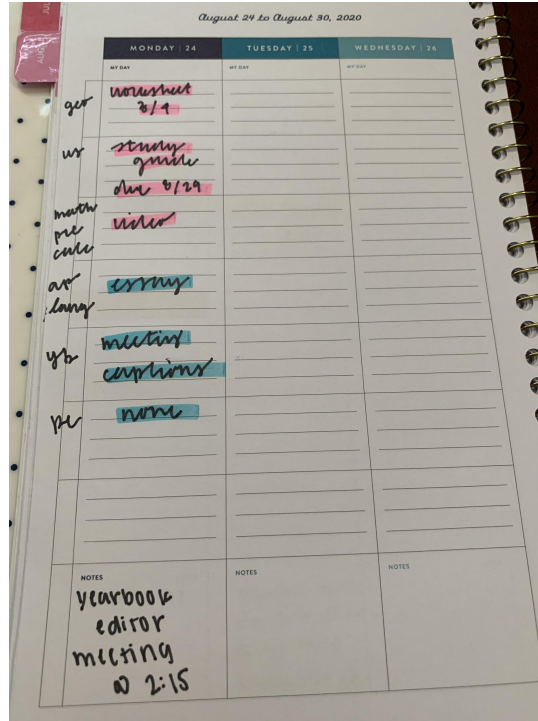 August 24 to August 30, 2020
MONDAY | 24
TUESDAY | 25
WEDNESDAY | 26
MY DAY
MY DAY
MY DAY
geo
worksheet
8/9
us
study
guide
due 8/29
math
pre
calc
video
ap
lang
essay
yb
meeting
captions
pe
none
NOTES
NOTES
NOTES
yearbook
editor
meeting
@ 2:15